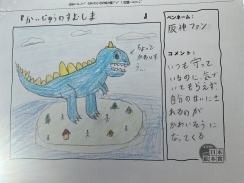 『かいじゅうのすむしま』
ちょっと
かわいそう…
ペンネーム：
阪神ファン
コメント：
いつも守って
いるのに、気づ
いてもらえず
自分のせいにさ
れるのが
かわいそうに
なってくる
日本
絵本賞